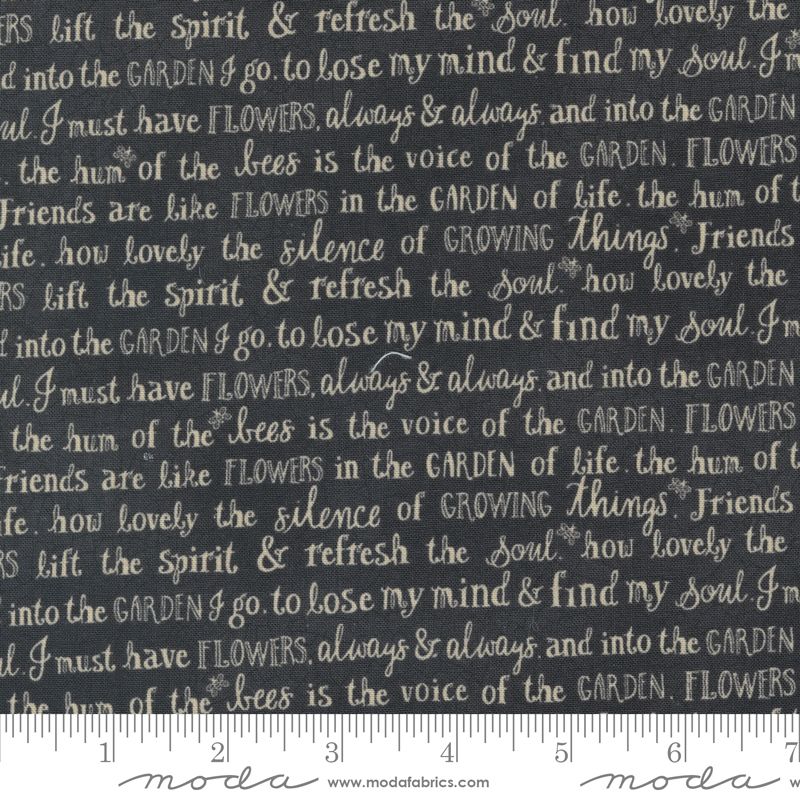 ERS lift the spirit & refresh the soul. how lovely the
d into the GARDEN I go. to lose my mind & find my soul. I m
ul. I must have FLOWERS, always & always. and into the GARDEN
. the hum of the bees is the voice of the GARDEN. FLOWERS
Friends are like FLOWERS in the GARDEN of life. the hum of t
ife. how lovely the silence of GROWING things. Friends
RS lift the spirit & refresh the soul. how lovely the
d into the GARDEN I go. to lose my mind & find my soul. I m
ul. I must have FLOWERS, always & always. and into the GARDEN
the hum of the bees is the voice of the GARDEN. FLOWERS
riends are like FLOWERS in the GARDEN of life. the hum of t
fe. how lovely the silence of GROWING things. Friends
ERS lift the spirit & refresh the soul. how lovely the
d into the GARDEN I go. to lose my mind & find my soul. I m
ul. I must have FLOWERS, always & always. and into the GARDEN
the hum of the bees is the voice of the GARDEN. FLOWERS
1 2 3 4 5 6 7
moda www.modafabrics.com moda w